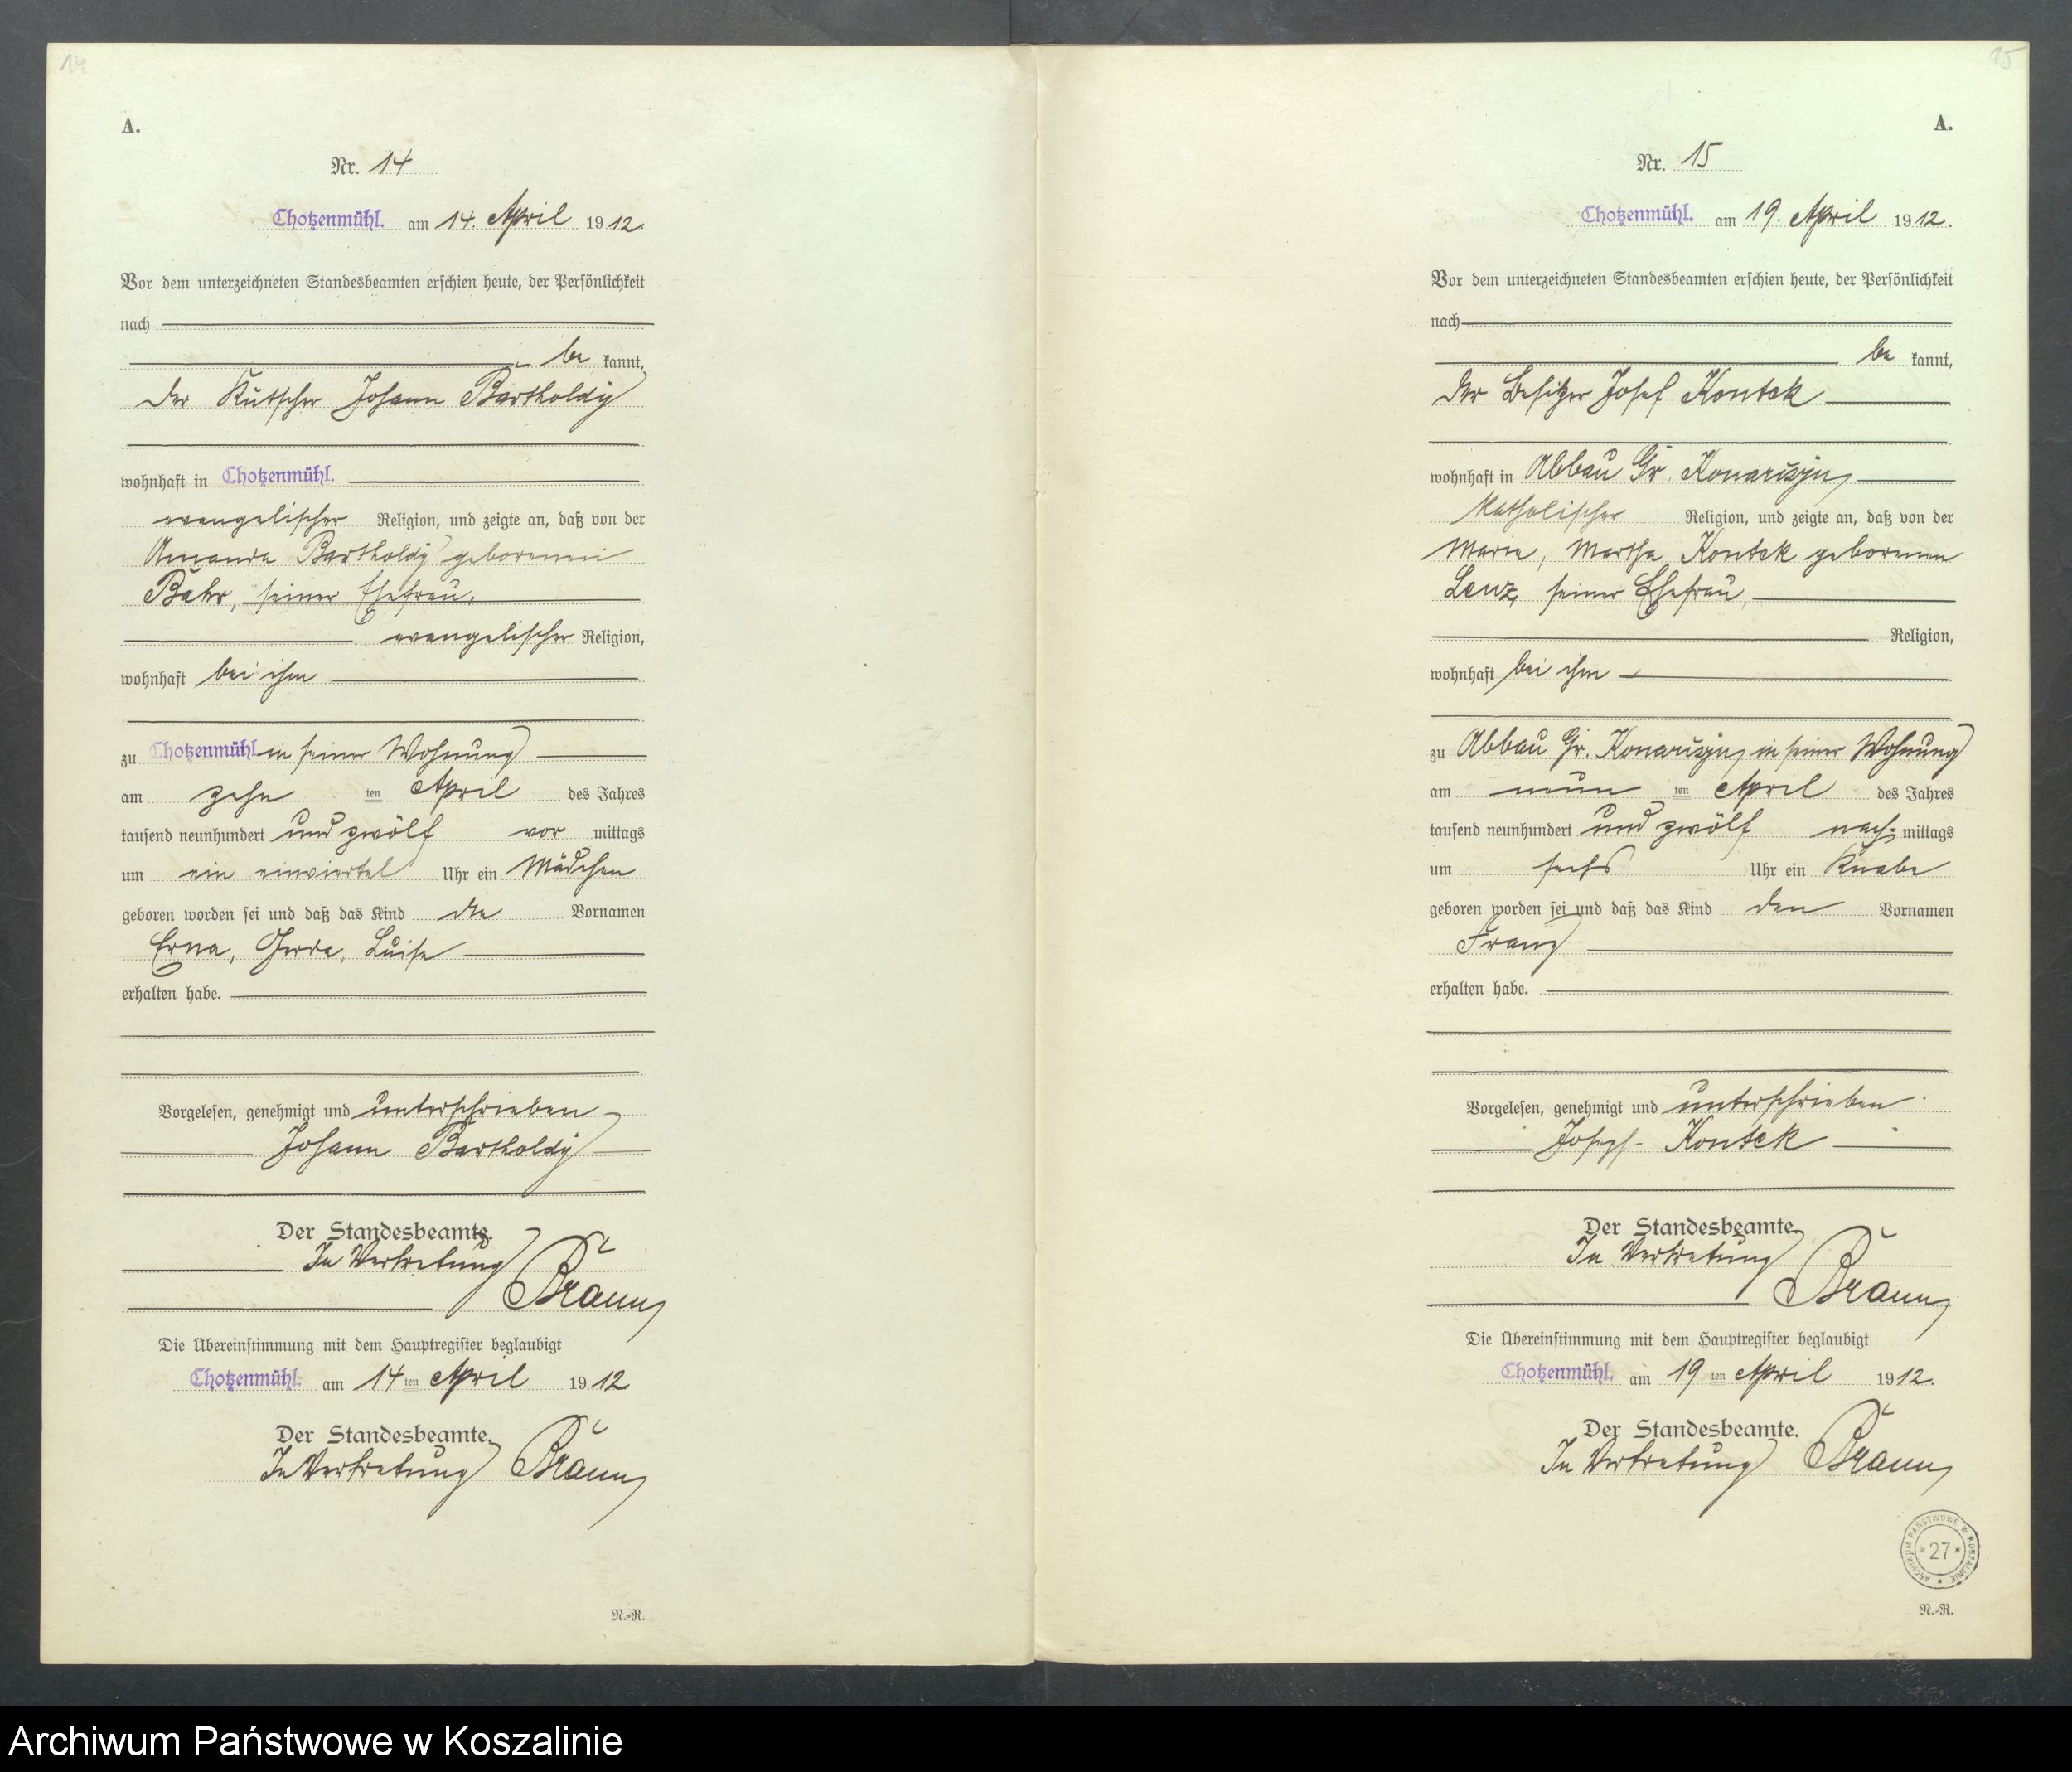 14
A.
Nr. 14
Chotzenmühl. am 14. April 1912.
Vor dem unterzeichneten Standesbeamten erschien heute, der Persönlichkeit
nach
be kannt,
der Kutscher Johann Bartholdy
wohnhaft in Chotzenmühl.
evangelischer Religion, und zeigte an, daß von der
Amanda Bartholdy geborenen
Bahr, seiner Ehefrau,
evangelischer Religion,
wohnhaft bei ihm
zu Chotzenmühl in seiner Wohnung
am zehn ten April des Jahres
tausend neunhundert und zwölf vor mittags
um ein einviertel Uhr ein Mädchen
geboren worden sei und daß das Kind die Vornamen
Erna, Gerda, Luise
erhalten habe.
Vorgelesen, genehmigt und unterschrieben
Johann Bartholdy
Der Standesbeamte.
In Vertretung
Braun
Die Übereinstimmung mit dem Hauptregister beglaubigt
Chotzenmühl. am 14 ten April 1912
Der Standesbeamte.
In Vertretung Braun
N.-R.
15
A.
Nr. 15
Chotzenmühl. am 19. April 1912.
Vor dem unterzeichneten Standesbeamten erschien heute, der Persönlichkeit
nach
be kannt,
der Besitzer Josef Kontek
wohnhaft in Abbau Gr. Konarczyn
katholischer Religion, und zeigte an, daß von der
Maria, Martha Kontek geborenen
Lenz, seiner Ehefrau,
Religion,
wohnhaft bei ihm
zu Abbau Gr. Konarczyn, in seiner Wohnung
am neun ten April des Jahres
tausend neunhundert und zwölf nach mittags
um sechs Uhr ein Knabe
geboren worden sei und daß das Kind den Vornamen
Franz
erhalten habe.
Vorgelesen, genehmigt und unterschrieben
Joseph Kontek
Der Standesbeamte.
In Vertretung
Braun
Die Übereinstimmung mit dem Hauptregister beglaubigt
Chotzenmühl. am 19 ten April 1912.
Der Standesbeamte.
In Vertretung Braun
ARCHIWUM PAŃSTWOWE W KOSZALINIE
27
N.-R.
Archiwum Państwowe w Koszalinie